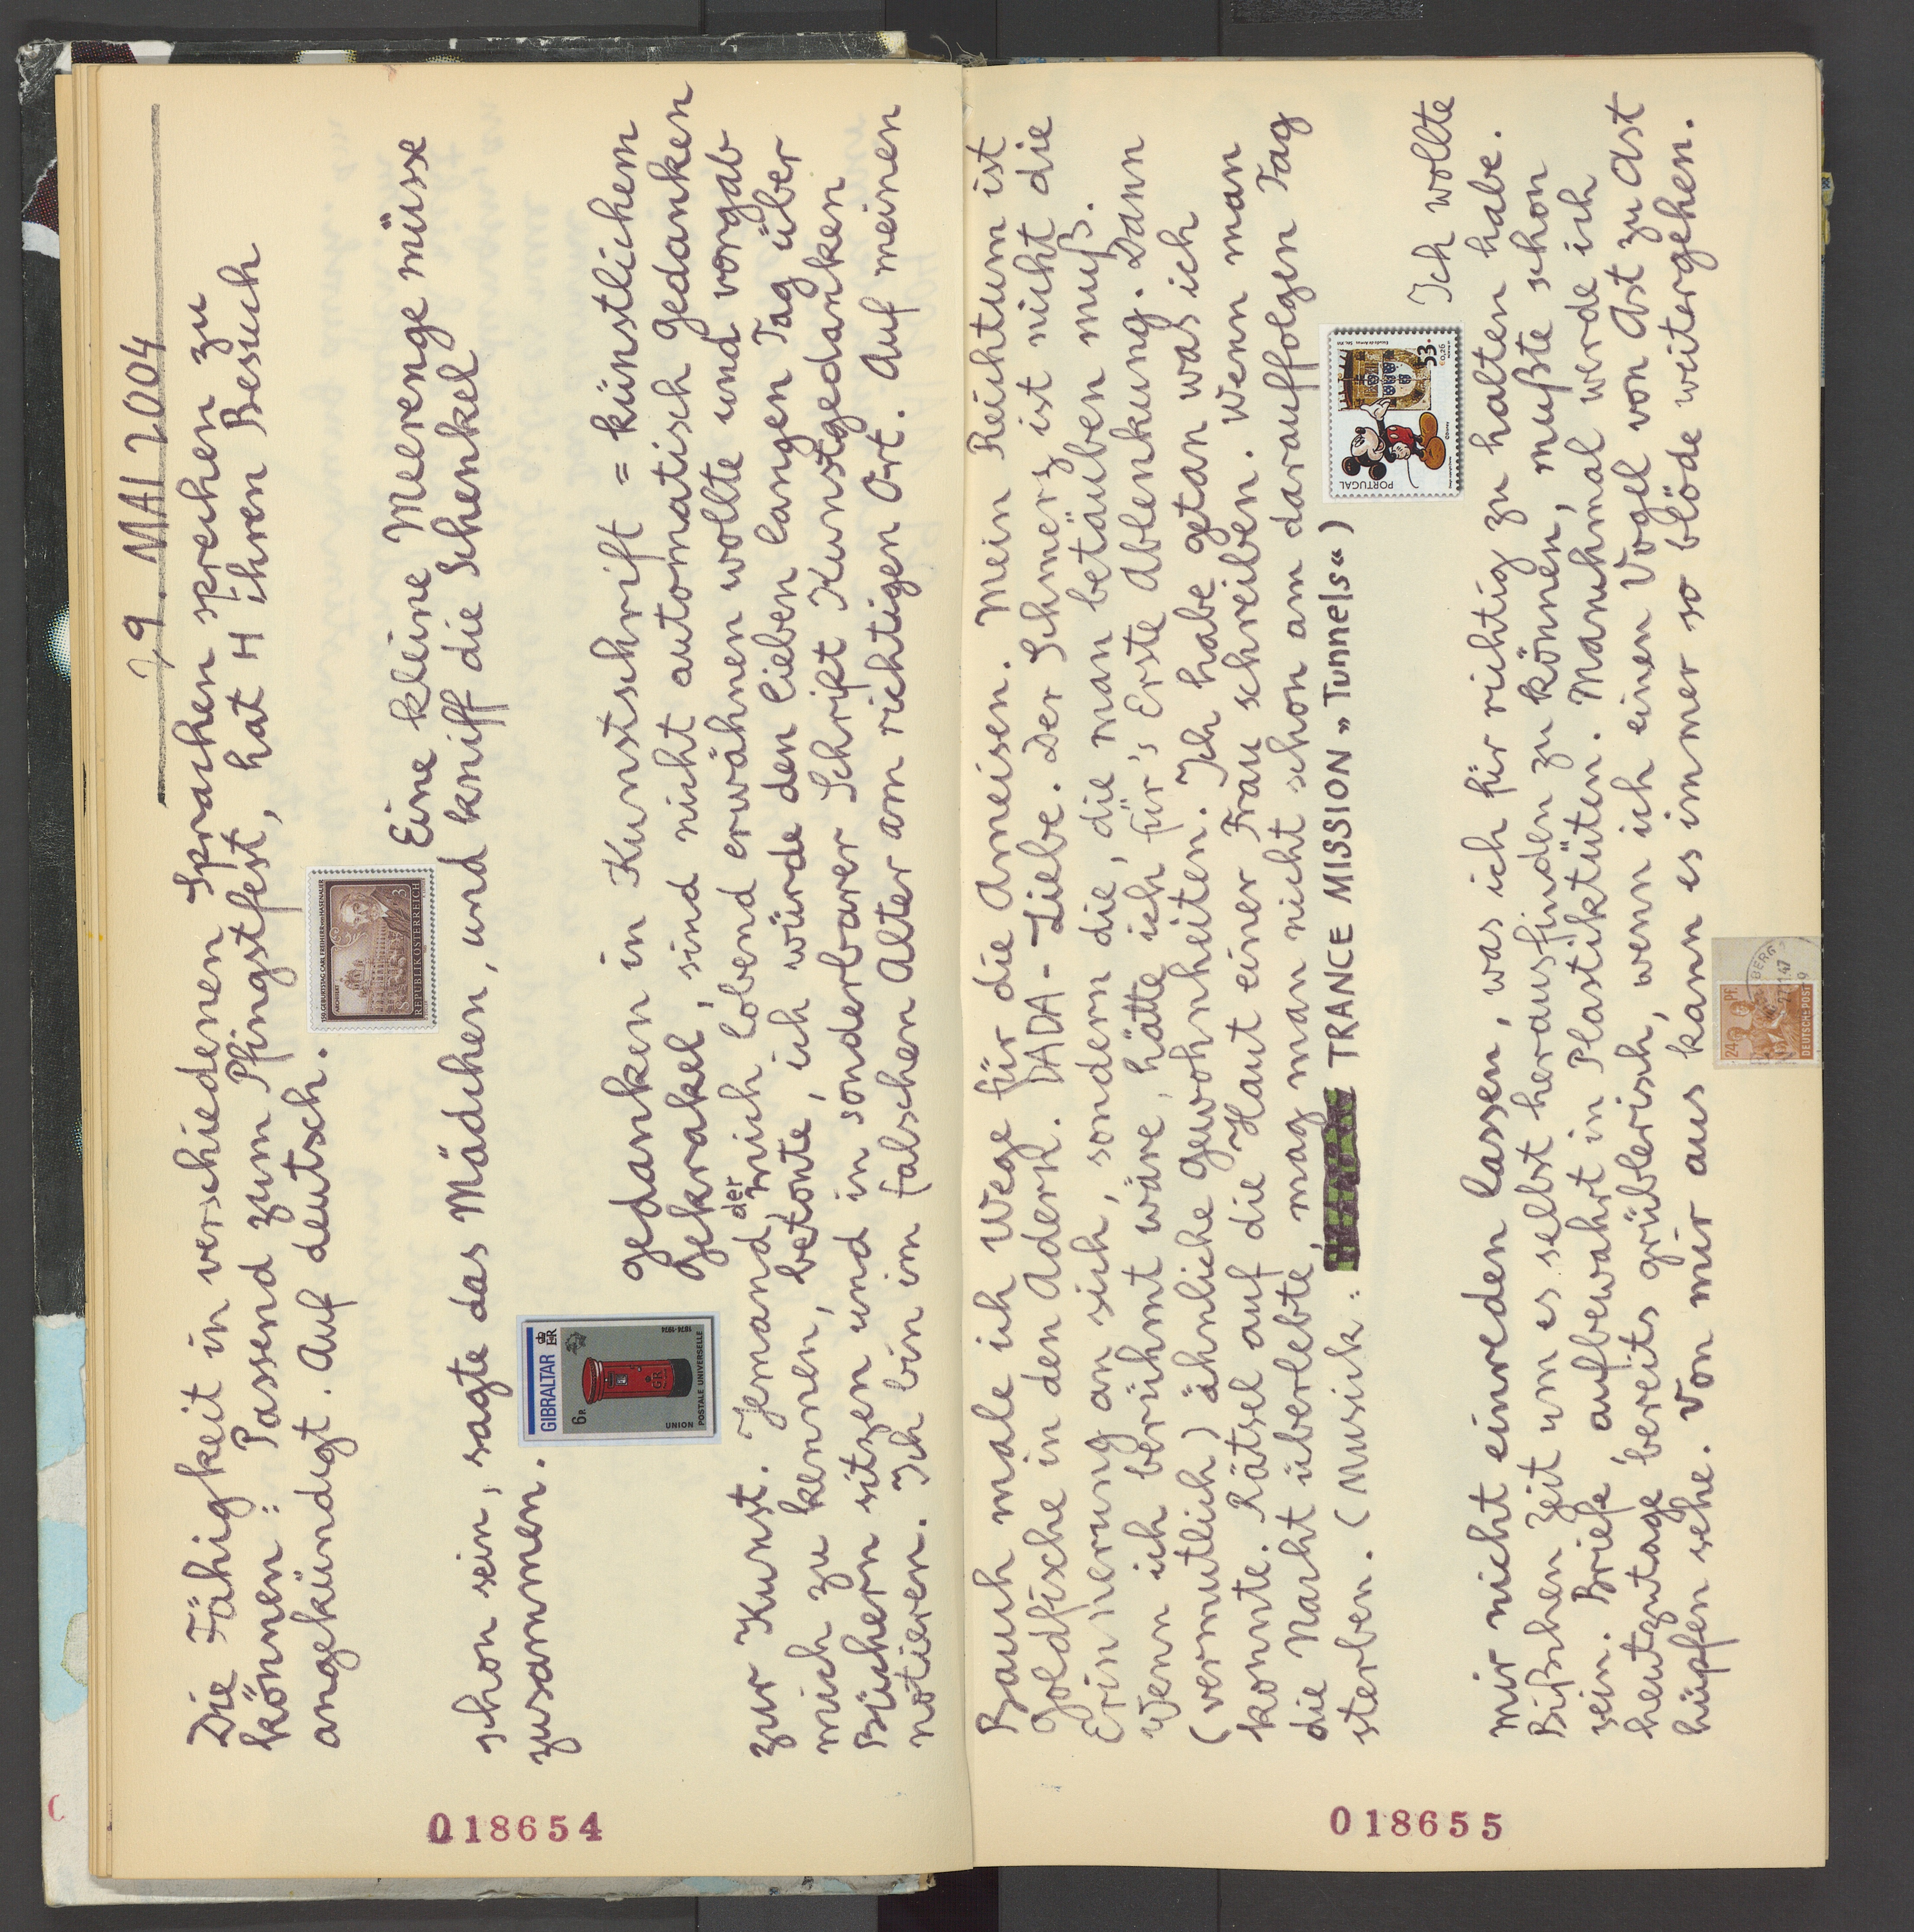 29. MAI 2004
Die Fähigkeit in verschiedenen Sprachen sprechen zu
können: Passend zum Pfingstfest, hat H ihren Besuch
angekündigt. Auf deutsch.
150. GEBURTSTAG CARL FREIHERR VON HASENAUER
ARCHITEKT
REPUBLIK ÖSTERREICH
S 3
Eine kleine Meerenge müsse
schon sein, sagte das Mädchen, und kniff die Schenkel
zusammen.
GIBRALTAR
6P
GR
1874-1974
UNION
POSTALE UNIVERSELLE
gedanken in Kunstschrift = künstlichem
Gekrakel, sind nicht automatisch Gedanken
zur Kunst. Jemand der mich lobend erwähnen wollte und vorgab
mich zu kennen, betonte, ich würde den lieben langen Tag über
Büchern sitzen und in sonderbarer Schrift Kunstgedanken
notieren. Ich bin im falschen Alter am richtigen Ort. Auf meinen
018654
Bauch male ich Wege für die Ameisen. Mein Reichtum ist
Goldfische in den Adern. DADA-Liebe. Der Schmerz ist nicht die
Erinnerung an sich, sondern die, die man betäuben muß.
Wenn ich berühmt wäre, hätte ich für's Erste Ablenkung. Dann
(vermutlich) ähnliche Gewohnheiten. Ich habe getan was ich
konnte. Rätsel auf die Haut einer Frau schreiben. Wenn man
die Nacht überlebte, mag man nicht schon am darauffolgen Tag
sterben. (Musik: TRANCE MISSION »Tunnels«)
PORTUGAL
53.
€0,26
Ich wollte
mir nicht einreden lassen, was ich für richtig zu halten habe.
Bißchen Zeit um es selbst herausfinden zu können, mußte schon
sein. Briefe aufbewahrt in Plastiktüten. Manchmal werde ich
heutzutage bereits grüblerisch, wenn ich einen Vogel von Ast zu Ast
hüpfen sehe. Von mir aus kann es immer so blöde weitergehen.
24 PF
DEUTSCHE POST
BERG
47
018655